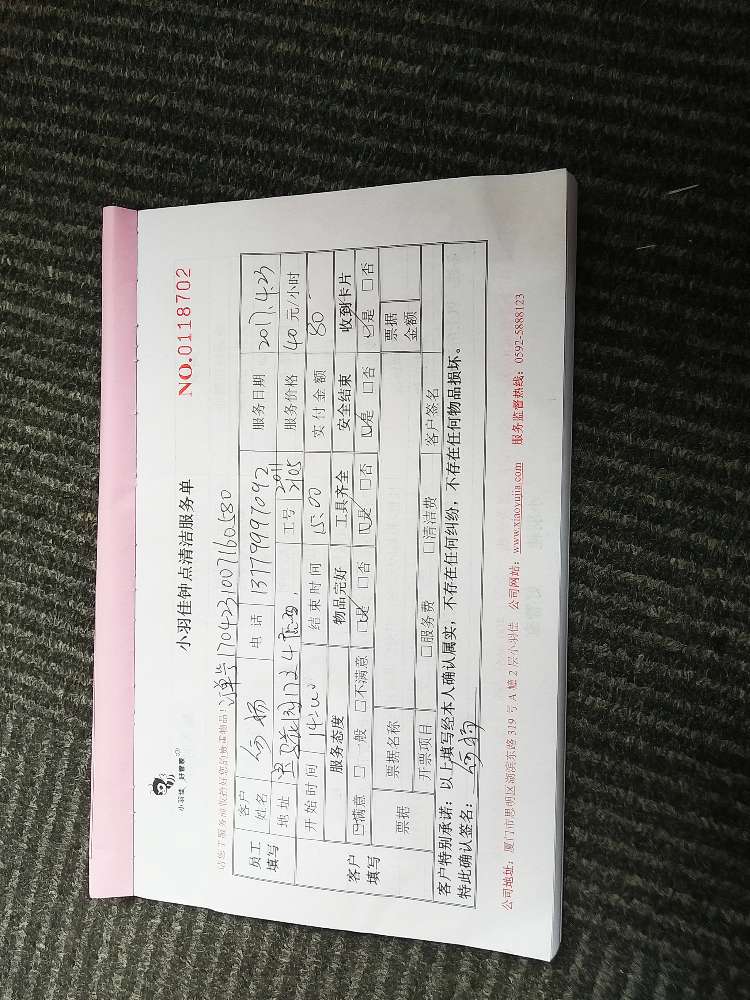 小羽佳 好管家
小羽佳钟点清洁服务单
NO.0118702
订单号1704231007160580
员工填写 客户姓名 何杨 电话 13779997092 服务日期 2017.4.23
地址 工号 服务价格 40元/小时
开始时间 14:00 结束时间 15:00 实付金额 80
客户填写 服务态度 物品完好 工具齐全 安全结束 收到卡片
☑满意 □一般 □不满意 ☑是 □否 ☑是 □否 ☑是 □否 ☑是 □否
票据 票据名称 票据金额
开票项目 □服务费 □清洁费 客户签名
客户特别承诺：以上填写经本人确认属实，不存在任何纠纷，不存在任何物品损坏。
特此确认签名：何杨
公司地址：厦门市思明区湖滨东路 319 号 A 幢 2 层小羽佳 公司网站：www.xiaoyujia.com 服务监督热线：0592-5888123